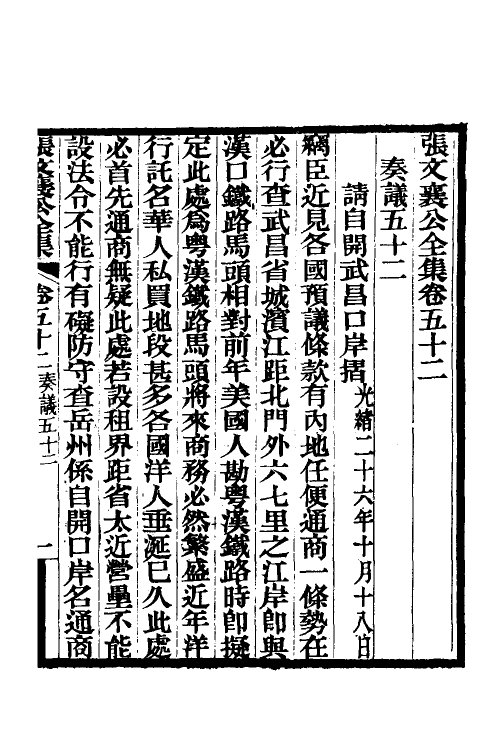 張文襄公全集卷五十二
奏議五十二
請自開武昌口岸摺光緒二十六年十月十八日
竊臣近見各國預議條款有內地任便通商一條勢在
必行查武昌省城濱江距北門外六七里之江岸卽與
漢口鐵路馬頭相對前年美國人勘粵漢鐵路時卽擬
定此處爲粵漢鐵路馬頭將來商務必然繁盛近年洋
行託名華人私買地段甚多各國洋人垂涎已久此處
必首先通商無疑此處若設租界距省太近營壘不能
設法令不能行有礙防守查岳州係自開口岸名通商
張文襄公全集 卷五十二奏議五十二 一